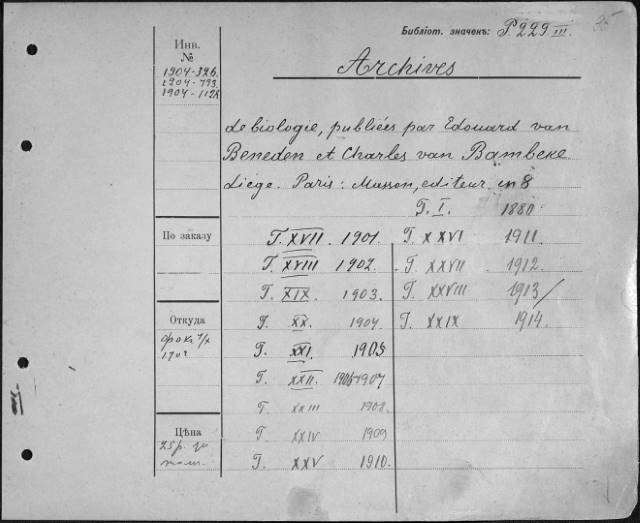 35
Библіот. значекъ: P.229 III.
Инв.
№
1904-326.
1904-793.
1904-1125
Archives
de biologie, publiées par Edouard van
Beneden et Charles van Bambeke
Liége. Paris: Masson, editeur in 8
T. I. 1880
По заказу
T. XVII 1901. T. XXVI 1911.
T. XVIII 1902. T. XXVII 1912.
T. XIX 1903. T. XXVIII 1913/
Откуда
T. XX. 1904 T. XXIX 1914.
T. XXI. 1905
T. XXII. 1906-1907
T. XXIII 1908.
Цѣна
T. XXIV 1909
25 р.
T. XXV 1910.